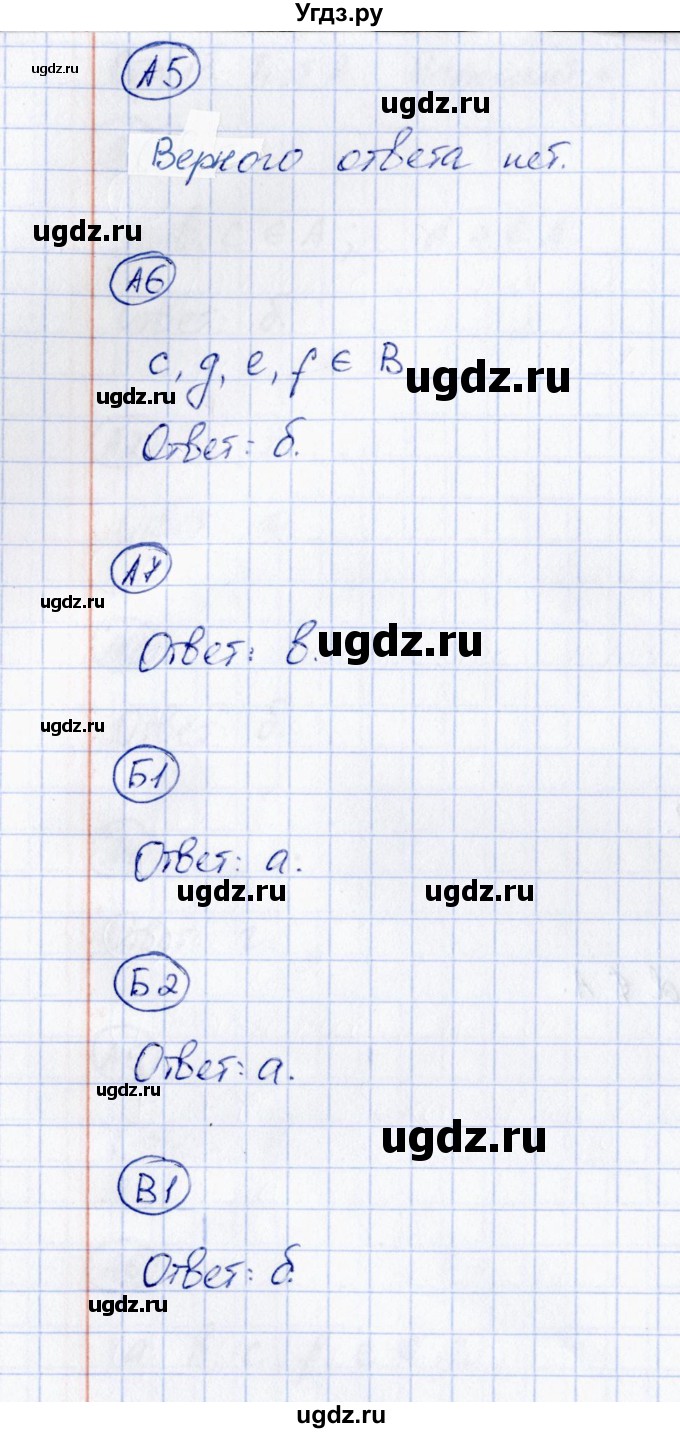 Угдз.ру
ugdz.ru
А5
ugdz.ru
Верного ответа нет.
ugdz.ru
А6
c, g, e, f ∈ B
ugdz.ru
ugdz.ru
Ответ: б.
А7
ugdz.ru
Ответ: в.
ugdz.ru
ugdz.ru
Б1
Ответ: а.
ugdz.ru
ugdz.ru
Б2
Ответ: а.
ugdz.ru
ugdz.ru
В1
Ответ: б.
ugdz.ru
ugdz.ru